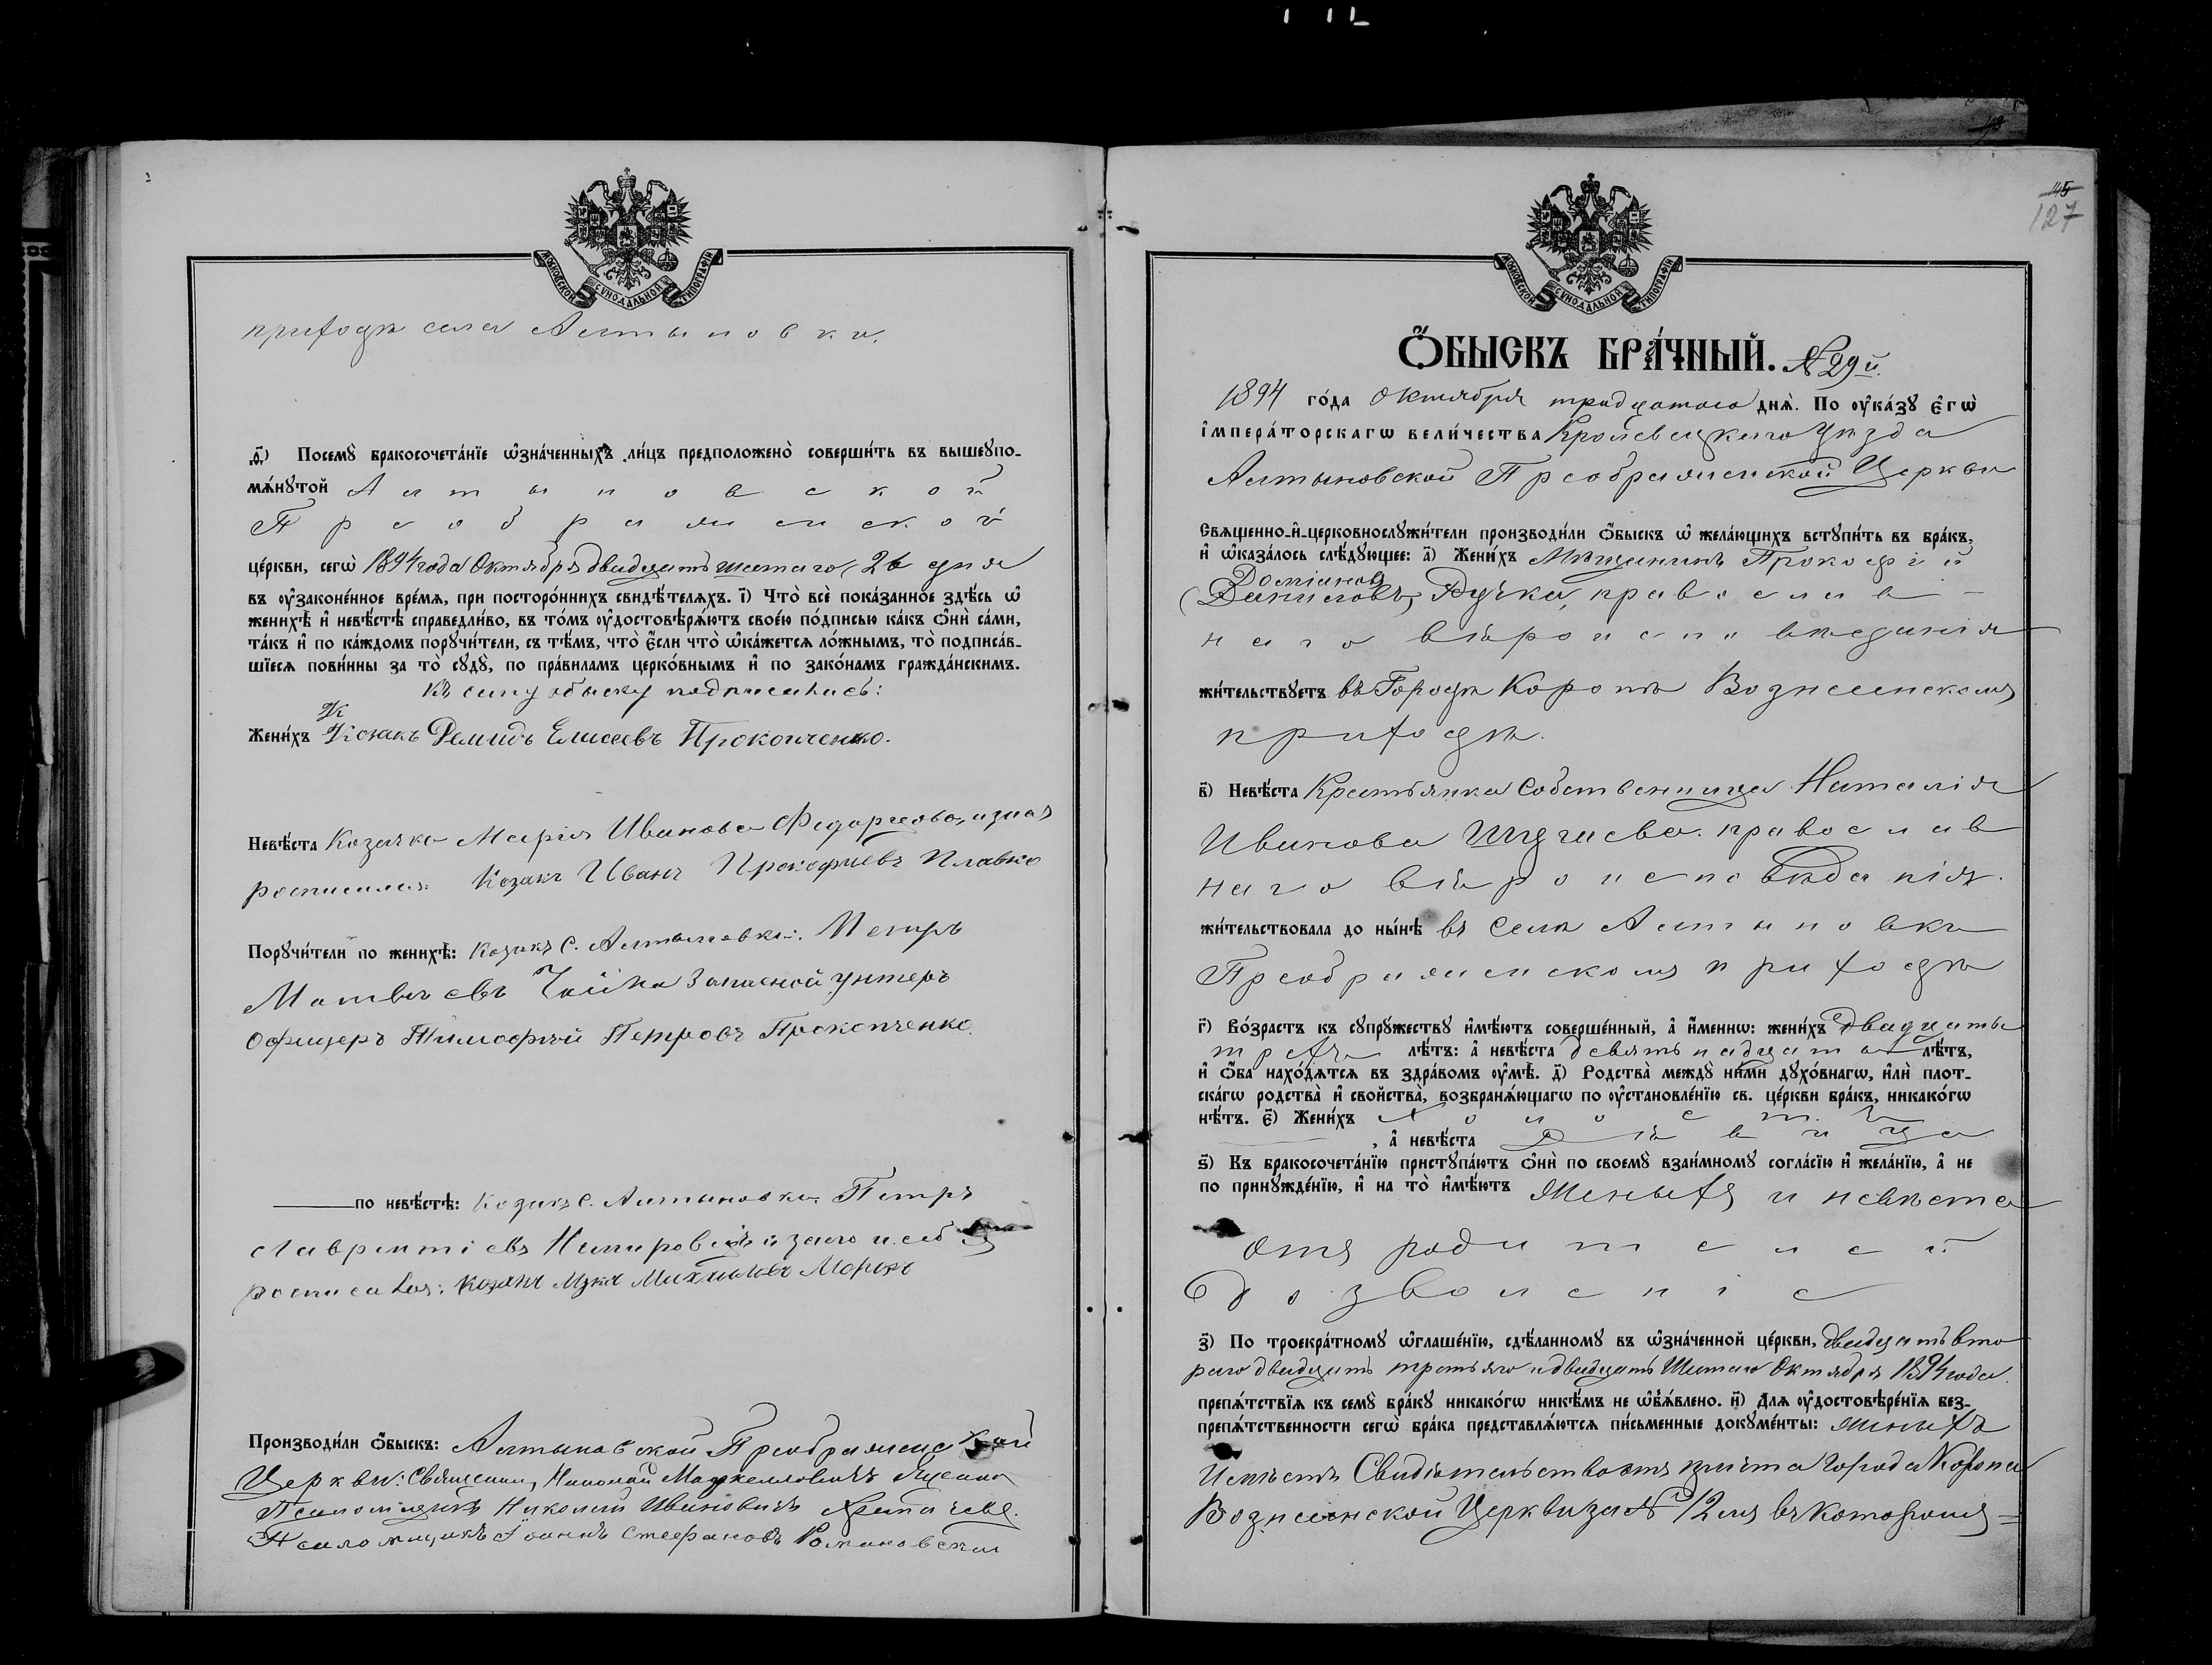 МОСКОВСКОЙ СѴНОДАЛЬНОЙ ТИПОГРАФІИ
приходѣ села Алтыновки.
д҃і) Посемꙋ̀ бракосочета́нїе ѡ҆зна́ченныхъ ли́цъ предположено̀ соверши́ть въ вышеꙋпо-
мѧ́нꙋтой Алтыновской
Преображенской
це́ркви, сегѡ̀ 1894 года Октября двадцать шестаго (26 дня
въ ᲂу҆законе́нное вре́мѧ, при посторо́ннихъ свидѣ́телѧхъ. і҃) Что̀ всѐ показа́нное здѣ́сь ѡ҆
женихѣ̀ и҆ невѣ́стѣ справедли́во, въ то́мъ ᲂу҆достовѣрѧ́ютъ свое́ю по́дписью ка́къ ѻ҆нѝ са́ми,
та́къ и҆ по ка́ждомъ порꙋчи́тели, съ тѣ́мъ, что̀ є҆́сли что̀ ѡ҆ка́жетсѧ ло́жнымъ, то̀ подписа́в-
шїесѧ пови́нны за то̀ сꙋдꙋ̀, по пра́виламъ церко́внымъ и҆ по зако́намъ гражда́нскимъ.
Къ сему обыску подписались:
Жени́хъ Козакъ Демидъ Елисеевъ Прокопченко.
Невѣ́ста Козачка Марія Иванова
росписался: Козакъ Иванъ Прокофіевъ Плавко
Порꙋчи́тели по женихѣ̀: Козакъ С. Алтыновки: Петръ
Матвѣевъ Чайка Запасной унтеръ
Офицеръ Тимофей Петровъ Прокопченко.
по невѣ́стѣ: Козакъ С. Алтыновки Петръ
Лаврентіевъ и за него и себя
росписался: Козакъ Михайловъ
Производи́ли ѻ҆́быскъ: Алтыновской Преображенской
Церкви: Священник Николай
Псаломщикъ Николай Ивановичъ
Псаломщикъ Іоаннъ Стефановъ Романовскій
127
МОСКОВСКОЙ СѴНОДАЛЬНОЙ ТИПОГРАФІИ
Ѻ҆́БЫСКЪ БРА́ЧНЫЙ. № 29й.
1894 го́да Октября тридцатаго днѧ̀. По ᲂу҆ка́зꙋ є҆гѡ̀
і҆мпера́торскагѡ вели́чества Кролевецкаго Уѣзда
Алтыновской Преображенской Церкви
Свѧщенно-и҆-церковнослꙋжи́тели производи́ли ѻ҆́быскъ ѡ҆ жела́ющихъ встꙋпи́ть въ бра́къ,
и҆ ѡ҆каза́лось слѣ́дꙋющее: а҃) Жени́хъ Мѣщанинъ Прокофій
Доміановъ
(Даниловъ) Ручка, православ-
наго вѣроисповѣданія
жи́тельствꙋетъ въ Городѣ Коропѣ Вознесенскомъ
приходѣ.
в҃) Невѣ́ста Крестьянка Собственница Наталія
Иванова православ
наго вѣроисповѣданія.
жи́тельствовала до ны́нѣ въ Селѣ Алтыновкѣ
Преображенскомъ приходѣ
г҃) Во́зрастъ къ сꙋпрꙋ́жествꙋ и҆мѣ́ютъ соверше́нный, а҆ и҆́меннѡ: жени́хъ двадцать
трехъ лѣ́тъ: а҆ невѣ́ста девятнадцать лѣ́тъ,
и҆ ѻ҆́ба нахо́дѧтсѧ въ здра́вомъ ᲂу҆мѣ̀. д҃) Родства̀ междꙋ̀ ни́ми дꙋхо́внагѡ, и҆лѝ плот-
ска́гѡ родства̀ и҆ сво́йства̀, возбранѧ́ющагѡ по ᲂу҆становле́нїю св. це́ркви бра́къ, никако́гѡ
нѣ́тъ. є҃) Жени́хъ Холостъ
, а҆ невѣ́ста Дѣвица
ѕ҃) Къ бракосочета́нїю пристꙋпа́ютъ ѻ҆нѝ по своемꙋ̀ взаи́мномꙋ согла́сїю и҆ жела́нїю, а҆ не
по принꙋжде́нїю, и҆ на то̀ и҆мѣ́ютъ Женихъ и невѣста
Отъ родителей
дозволеніе
з҃) По троекра́тномꙋ ѡ҆глаше́нїю, сдѣ́ланномꙋ въ ѡ҆зна́ченной це́ркви, двадцать вто
раго двадцать третьяго и двадцать Шестаго Октября 1894 года.
препѧ́тствїѧ къ семꙋ̀ бра́кꙋ никако́гѡ никѣ́мъ не ѡ҆б̾ѧ́влено. и҃) Длѧ ᲂу҆достовѣре́нїѧ без-
препѧ́тственности сегѡ̀ бра́ка представлѧ́ютсѧ пи́сьменные докꙋме́нты: Женихъ
Имѣетъ Свидѣтельство отъ причта города Коропа
Вознесенской Церкви за № 12мъ въ которомъ =